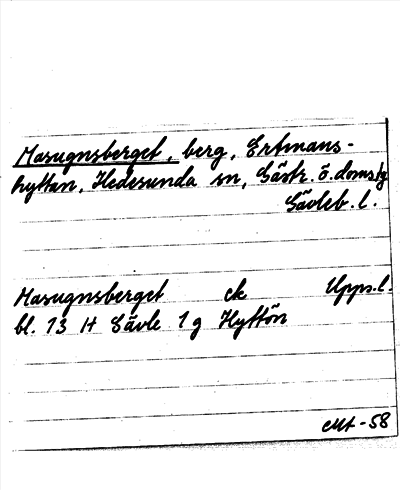 Masugnsberget, berg, Ertmans-
hyttan, Hedesunda sn, Gästr. ö. doms.
Gävleb. l.
Masugnsberget ek Upps.l.
bl. 13 H Gävle 1 g Hyttön
-58